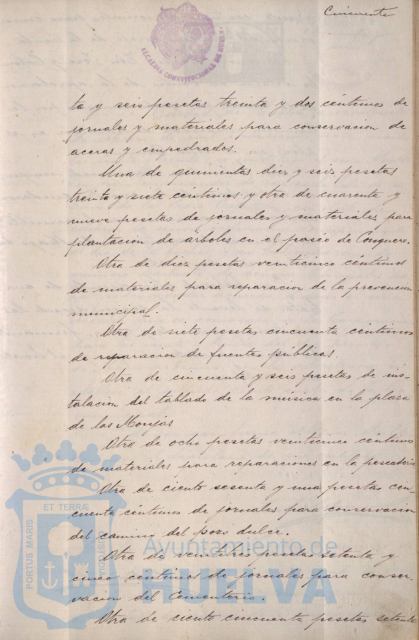 Cincuenta
ALCALDIA CONSTITUCIONAL DE HUELVA
ta y seis pesetas treinta y dos céntimos de
jornales y materiales para conservacion de
aceras y empedrados.
Una de quinientas diez y seis pesetas
treinta y siete centimos y otra de cuarenta y
nueve pesetas de jornales y materiales para
plantacion de árboles en el paseo de Conquero.
Otra de diez pesetas veinticinco céntimos
de materiales para reparacion de la prevencion
municipal.
Otra de siete pesetas cincuenta céntimos
de reparacion de fuentes públicas.
Otra de cincuenta y seis pesetas de ins-
talacion del tablado de la música en la plaza
de las Monjas
Otra de ocho pesetas veinticinco céntimos
de materiales para reparaciones en la pescaderia
Otra de ciento sesenta y una pesetas cin-
cuenta céntimos de jornales para conservacion
del camino del poso dulce.
Otra de veintidos pesetas setenta y
cinco centimos de jornales para conser-
vacion del Cementerio.
Otra de ciento cincuenta pesetas setenta
PORTUS MARIS ET TERRÆ
Ayuntamiento de
HUELVA